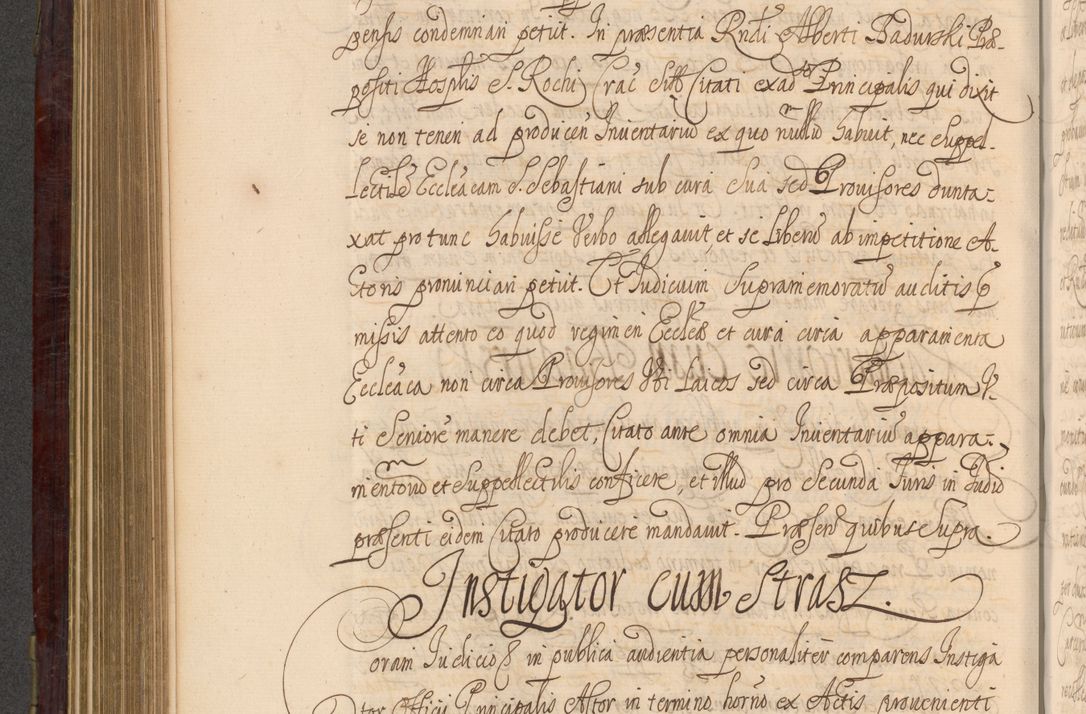 pensis condemnari petiit. In præsentia Rndi Alberti Badurski Præ-
positi Hosplis S. Rochi Crac siti Citati ex ad Principalis qui dixit
se non teneri ad producen Inventariū ex quo nullū habuit, nec suppel-
lectile Eccleācam S. Sebastiani sub cura sua sed Provisores dunta-
xat pro tunc habuisse Verbo allegavit et se liberū ab impetitione A-
ctoris pronunciari petiit. Et Judicium supramemoratū auditis p
missis attento eo quod regimen Eccleæ et cura circa apparamenta
Eccleāca non circa Provisores uti laicos sed circa Præpositum V-
ti Seniorē manere debet, Citato ante omnia Inventariū appara-
mentorū et suppellectilis conficere, et illud pro secunda Juris in Judio
præsenti eidem Citato producere mandavit. Præsen quibus supra.
Instigator cum Strasz.
oram Judicio &c in publica audientia personaliter comparens Instiga
tor Officii Principalis Actor in termino horno ex Actis provenienti